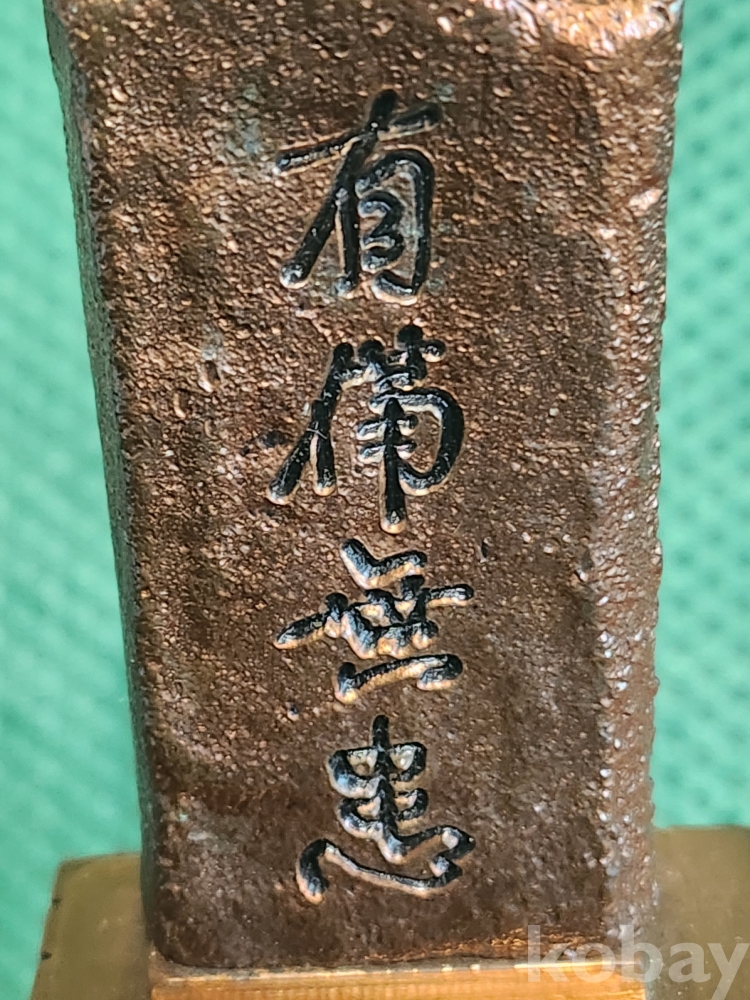 有備無患
kobay